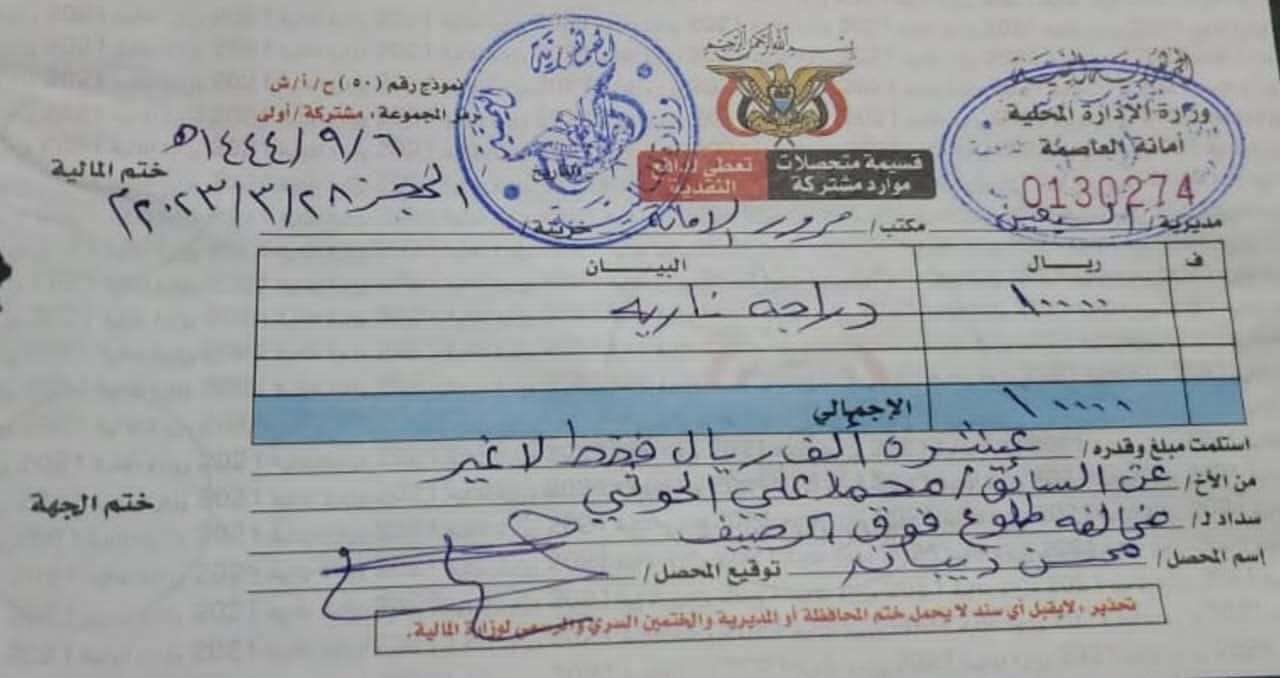 بسم الله الرحمن الرحيم
الجمهورية اليمنية
وزارة الإدارة المحلية
أمانة العاصمة
0130274
قسيمة متحصلات
موارد مشتركة
تعطى لدافع
النقدية
نموذج رقم (٥٠) ح/أ/ش
رمز المجموعة، مشتركة/أولى
١٤٤٤/٩/٦هـ
ختم المالية
الحجز ٢٠٢٣/٣/٢٨م
مديرية/ السبعين مكتب/ مرور الامانة خزينة/
ف ريـال البيـــان
١٠٠٠٠ دراجه ناريه
١٠٠٠٠ الإجمالي
استلمت مبلغ وقدره/ عشرة ألف ريال فقط لا غير
من الأخ/ عن السائق/ محمد علي الحوثي
ختم الجهة
سداد لـ/ مخالفه طلوع فوق الرصيف
إسم المحصل/ محسن توقيع المحصل/
تحذير، لايقبل أي سند لا يحمل ختم المحافظة أو المديرية والختمين السري والرسمي لوزارة المالية.